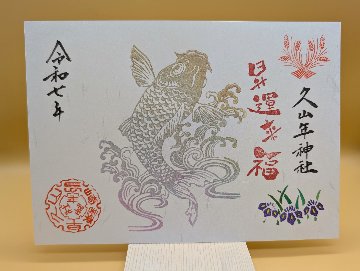 久山年神社
昇運来福
令和七年